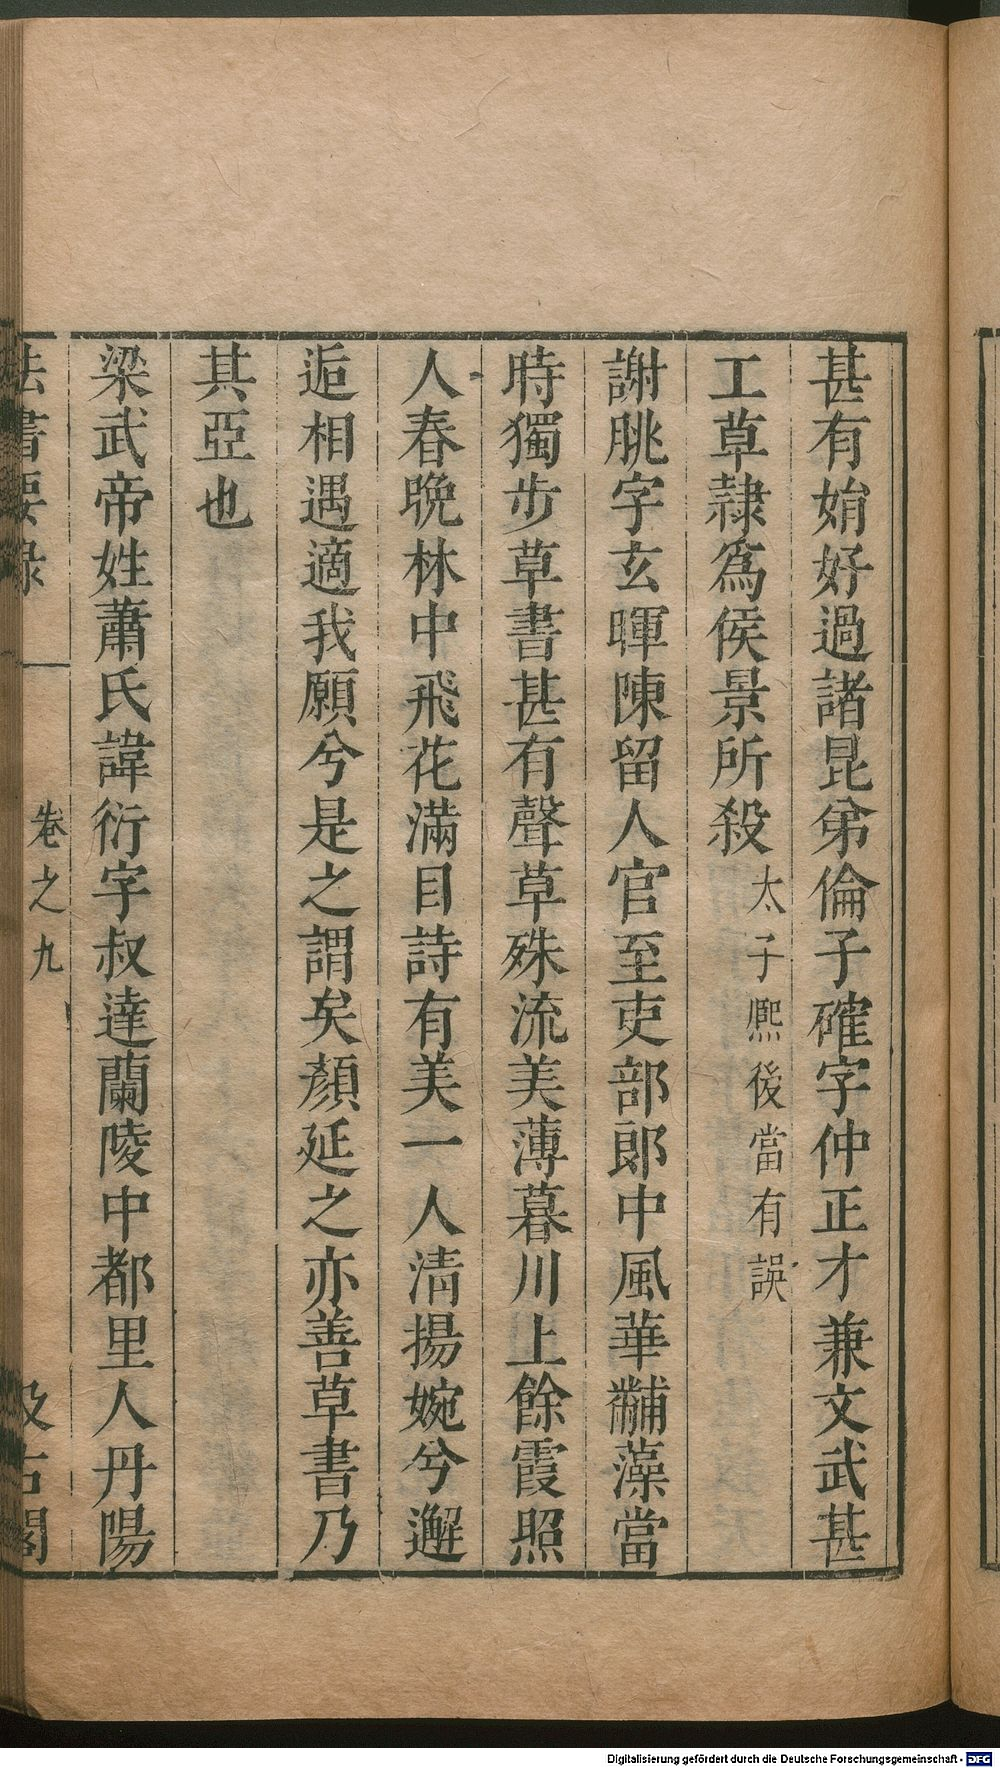 甚有娋好過諸昆弟倫子確字仲正才兼文武甚
工草隷爲侯景所殺太子熈後當有誤
謝朓字玄暉陳留人官至吏部郎中風華黼藻當
時獨步草書甚有聲草殊流美薄暮川上餘霞照
人春晩林中飛花滿目詩有美一人淸揚婉兮邂
逅相遇適我願兮是之謂矣顏延之亦善草書乃
其亞也
梁武帝姓蕭氏諱衍字叔達蘭陵中都里人丹陽
法書要録 卷之九 汲古閣
Digitalisierung gefördert durch die Deutsche Forschungsgemeinschaft - DFG